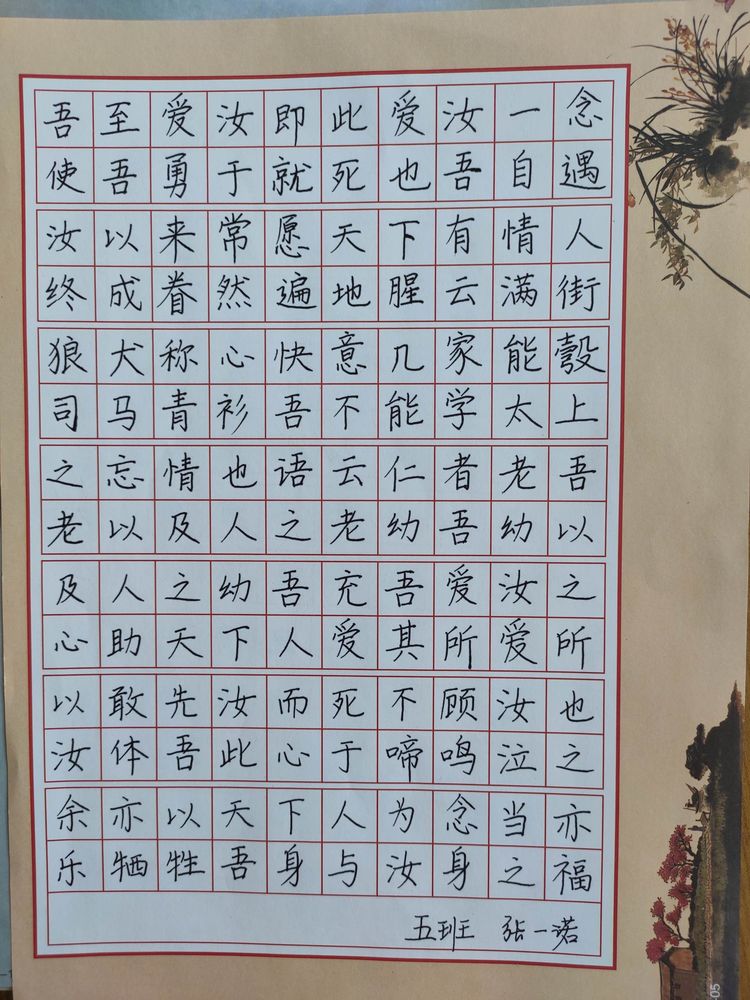 吾至爱汝即此爱汝一念
使吾勇于就死也吾自遇
汝以来常愿天下有情人
终成眷然遍地腥云满街
狼犬称心快意几家能彀
司马青衫吾不能学太上
之忘情也语云仁者老吾
老以及人之老幼吾幼以
及人之幼吾充吾爱汝之
心助天下人爱其所爱所
以敢先汝而死不顾汝也
汝体吾此心于啼鸣泣之
余亦以天下人为念当亦
乐牺牲吾身与汝身之福
五班 张一诺
05